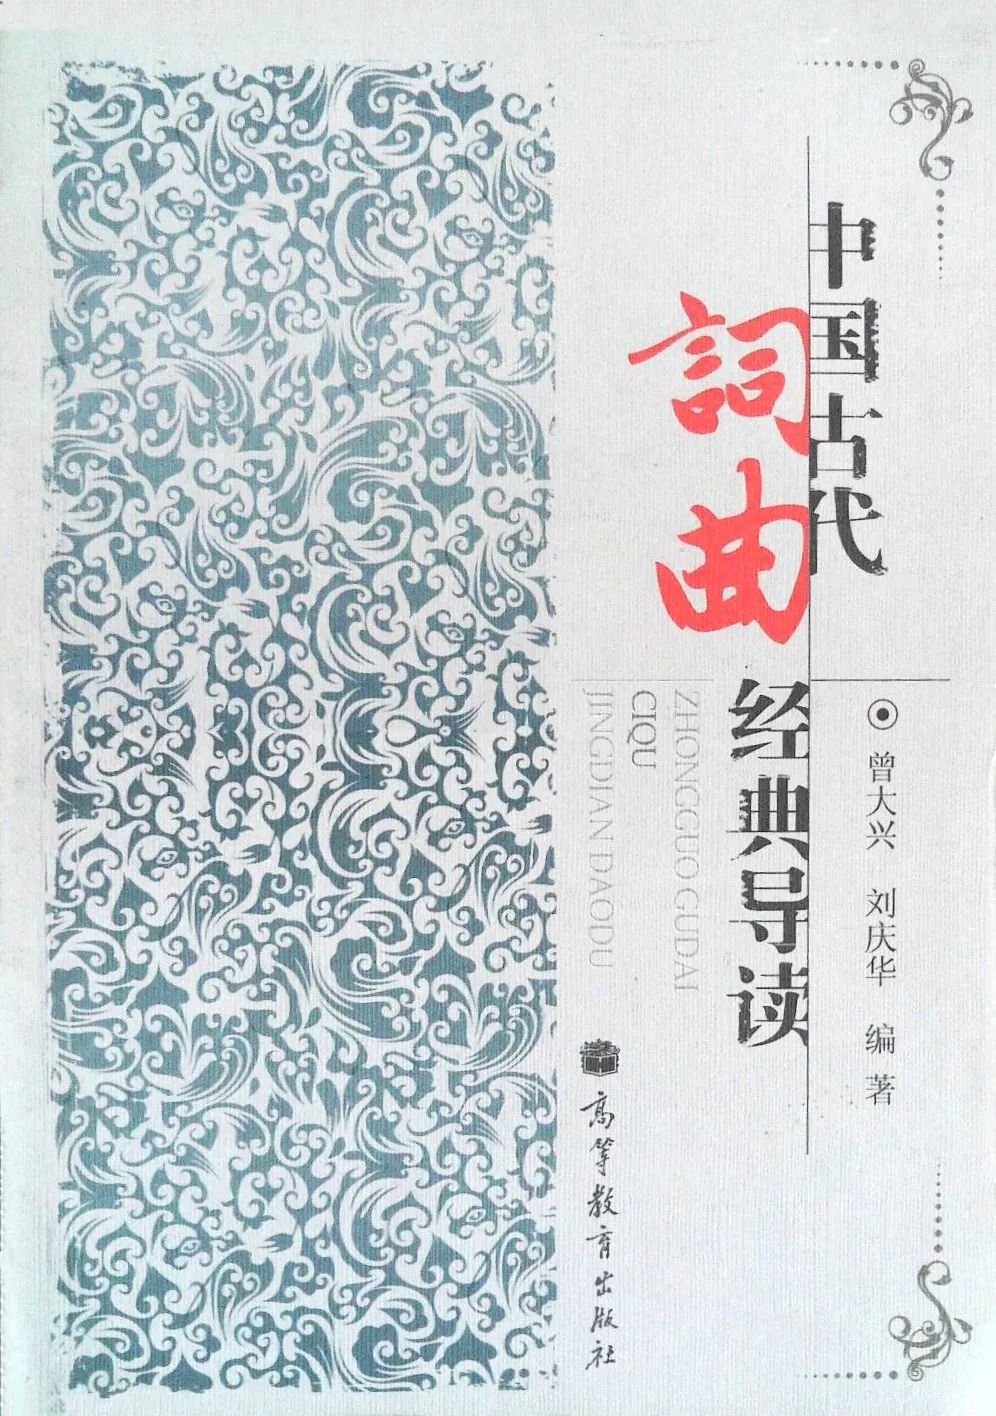 中国古代
詞曲
经典导读
ZHONGGUO GUDAI
CIQU
JINGDIAN DAODU
曾大兴 刘庆华 编著
高等教育出版社